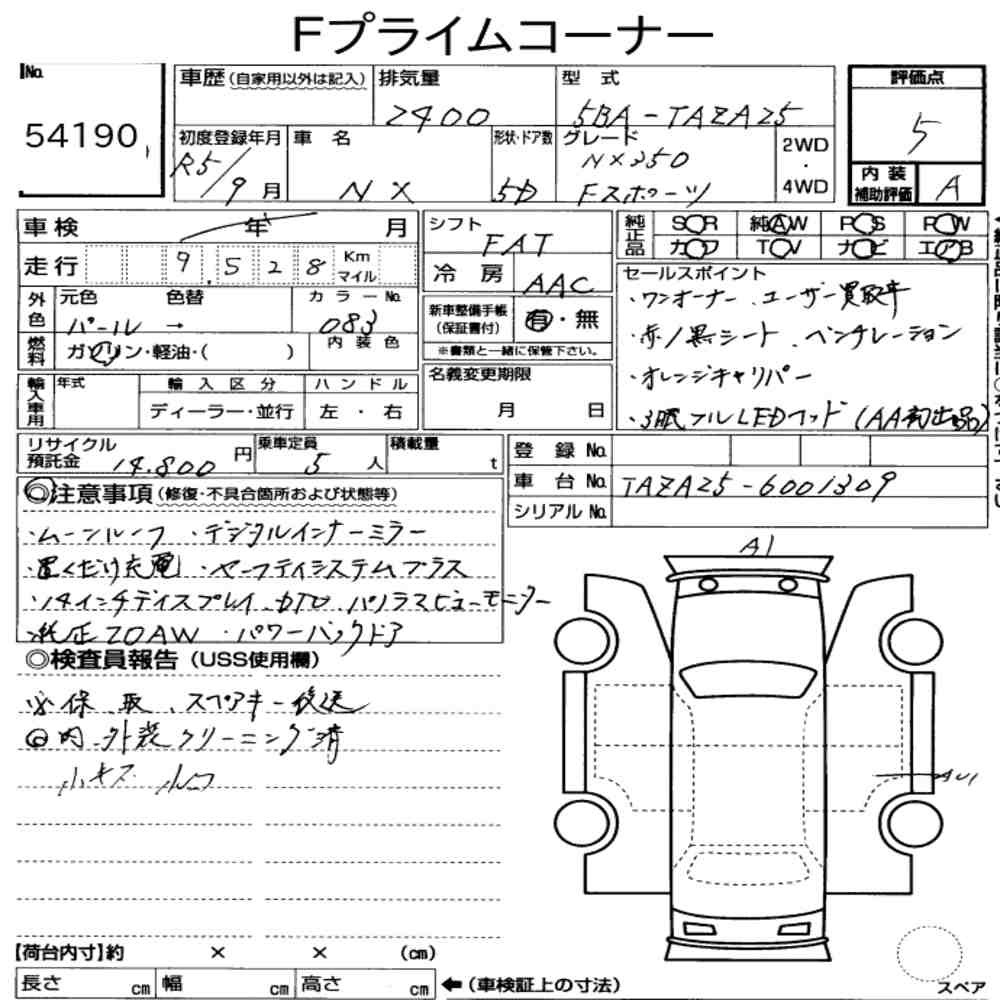 Fプライムコーナー
No.
54190
車歴（自家用以外は記入）
排気量
2400
型式
5BA-TAZA25
評価点
5
初度登録年月
R5/9月
車名
NX
形状・ドア数
5D
グレード
NX350
Fスポーツ
2WD
・
4WD
内装
補助評価
A
車検
年 月
走行
9,528
Km
マイル
外色
元色 色替
パール →
カラーNo.
083
燃料
ガソリン・軽油・( )
内装色
輸入車用
年式
輸入区分
ディーラー・並行
ハンドル
左・右
シフト
FAT
冷房
AAC
新車整備手帳
（保証書付）
有・無
※書類と一緒に保管下さい。
名義変更期限
月 日
純正品
SR 純AW PS PW
カワ TV ナビ エアB
セールスポイント
・ワンオーナー、ユーザー買取車
・赤/黒シート、ベンチレーション
・オレンジキャリパー
・3眼フルLEDヘッド (AA初出品)
リサイクル
預託金
14.800円
乗車定員
5人
積載量
t
登録No.
車台No.
TAZA25-6001309
シリアルNo.
◎注意事項（修復・不具合箇所および状態等）
・ムーンルーフ ・デジタルインナーミラー
・置くだけ充電 ・セーフティシステムプラス
・14インチディスプレイ、DTV パノラマビューモニター
・純正20AW ・パワーバックドア
◎検査員報告（USS使用欄）
※保、取、スペアキー後送
◎内、外装クリーニング済
小キズ
A1
【荷台内寸】約 × × （cm）
長さ cm 幅 cm 高さ cm
←（車検証上の寸法）
スペア